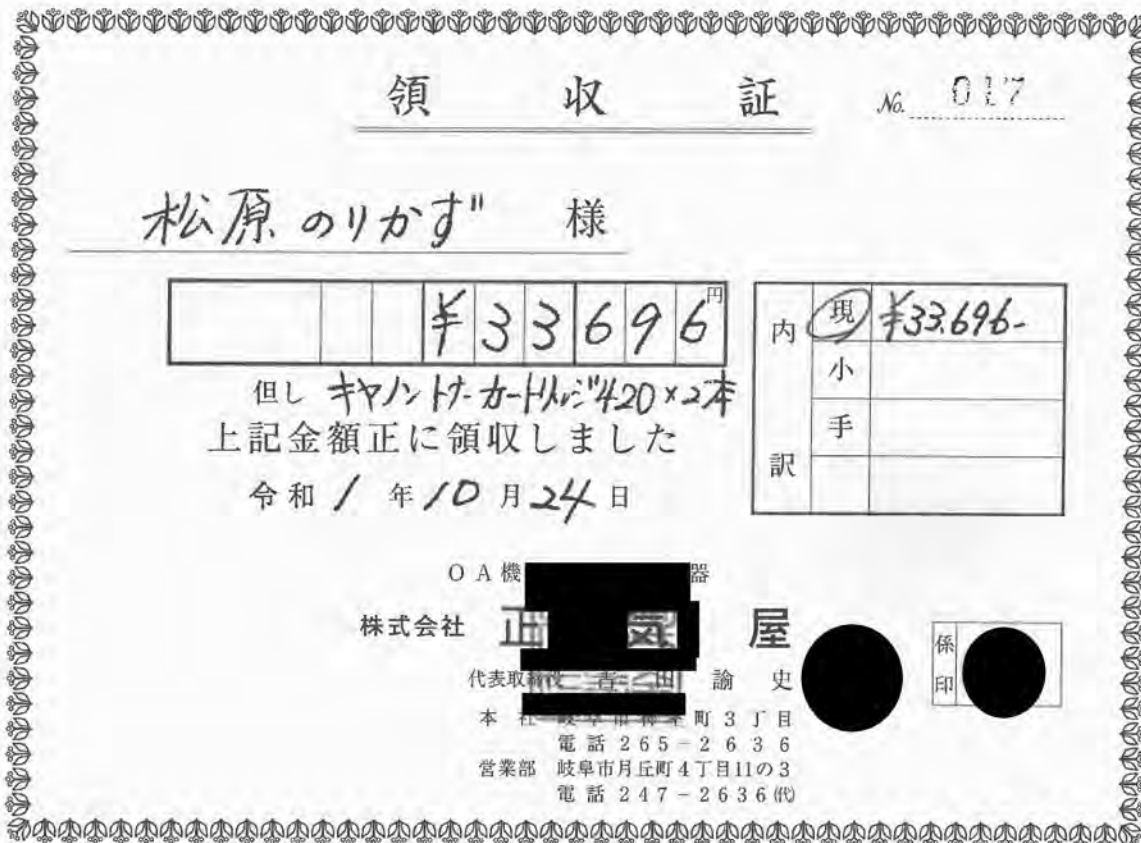 領収証 No. 017
松原のりかず 様
¥33696円
但し キヤノントナーカートリッジ420×2本
上記金額正に領収しました
令和1年10月24日
内訳
現 ¥33.696-
小
手
OA機 器
株式会社 正 気 屋
代表取締役 吉田諭史
本社 岐阜市 町3丁目
電話265-2636
営業部 岐阜市月丘町4丁目11の3
電話247-2636(代)
係印